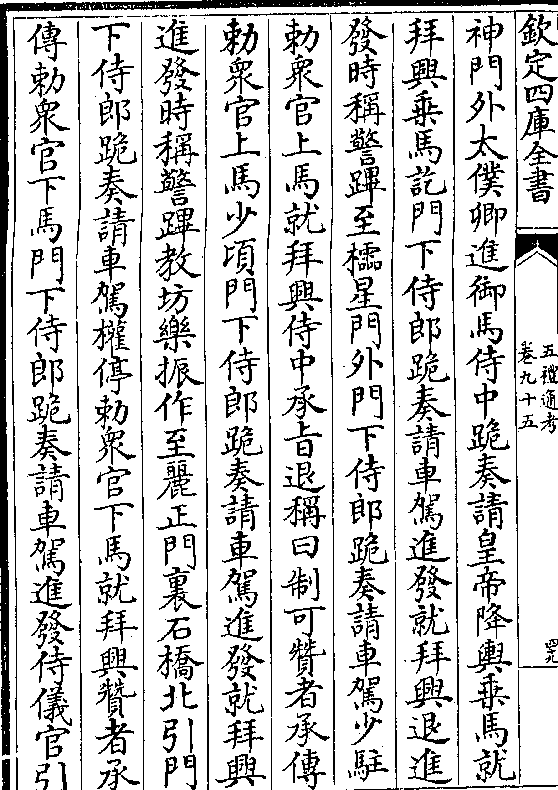 欽定四庫全書
五禮通考
卷九十五
四九
神門外太僕卿進御馬侍中跪奏請皇帝降輿乗馬就
拜興乗馬訖門下侍郎跪奏請車駕進發就拜興退進
發時稱警蹕至櫺星門外門下侍郎跪奏請車駕少駐
勅衆官上馬就拜興侍中承旨退稱曰制可贊者承傳
勅衆官上馬少頃門下侍郎跪奏請車駕進發就拜興
進發時稱警蹕教坊樂振作至麗正門裏石橋北引門
下侍郎跪奏請車駕權停勅衆官下馬就拜興贊者承
傳勅衆官下馬門下侍郎跪奏請車駕進發侍儀官引